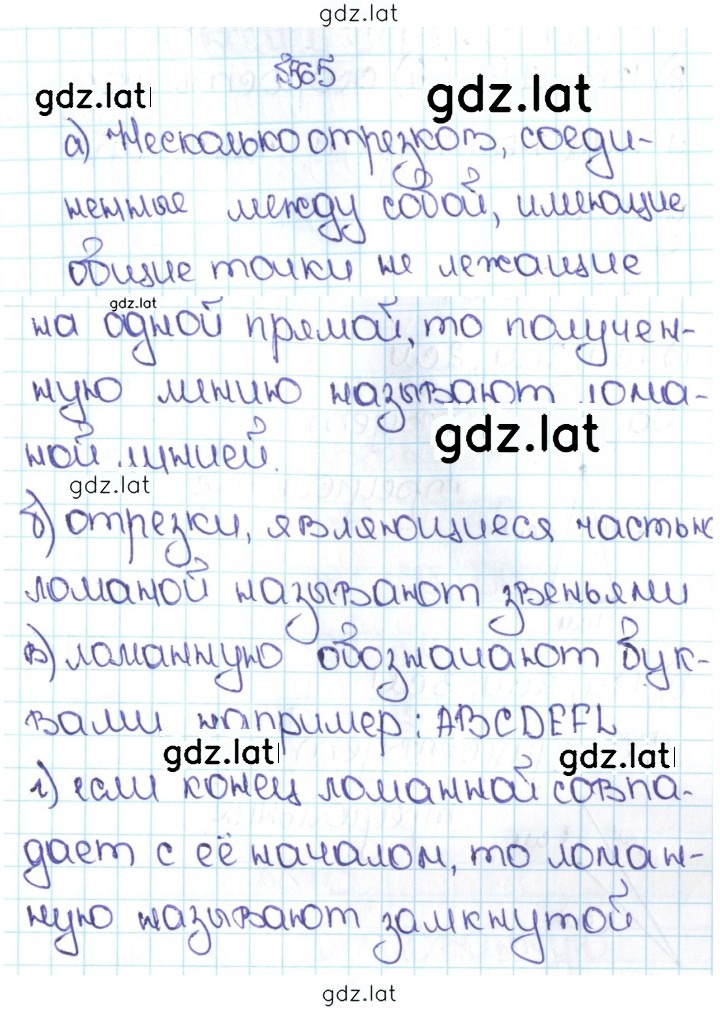 gdz.lat
№565
gdz.lat gdz.lat
а) Несколько отрезков, соеди-
ненные между собой, имеющие
общие точки не лежащие
gdz.lat
на одной прямой, то получен-
ную линию называют лома-
gdz.lat
ной линией.
gdz.lat
б) отрезки, являющиеся частью
ломаной называют звеньями
в) ломанную обозначают бук-
вами например: ABCDEFL
gdz.lat gdz.lat
г) если конец ломанной совпа-
дает с её началом, то ломан-
ную называют замкнутой
gdz.lat